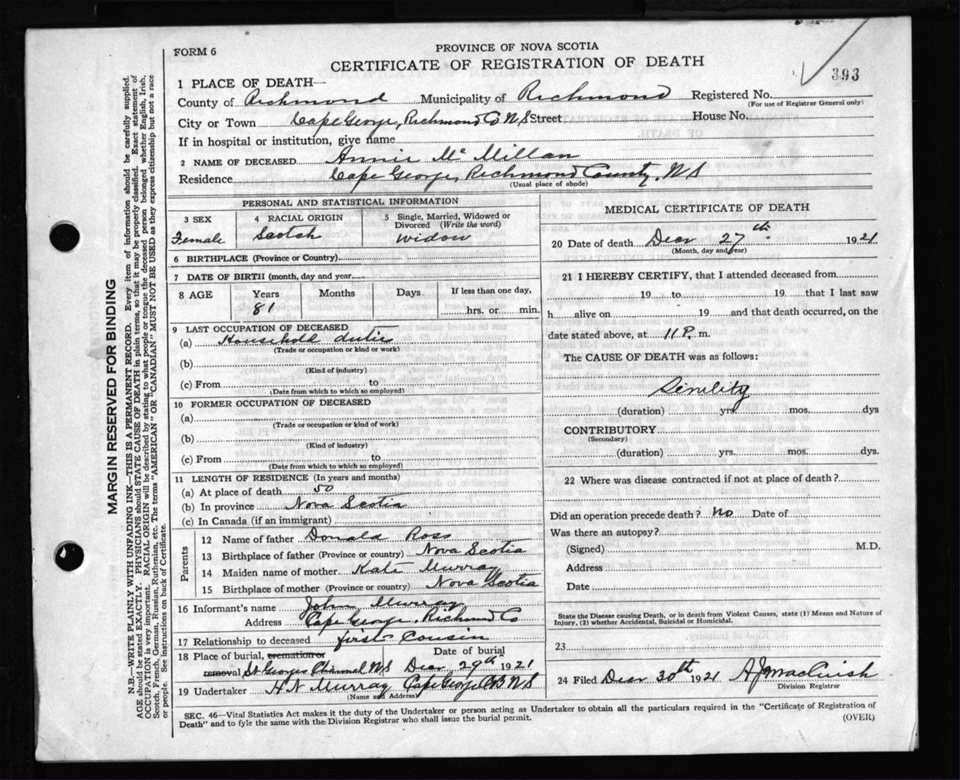 FORM 6
PROVINCE OF NOVA SCOTIA
CERTIFICATE OF REGISTRATION OF DEATH
393
1 PLACE OF DEATH—
County of Richmond Municipality of Richmond Registered No.
(For use of Registrar General only)
City or Town Cape George, Richmond Co N S Street House No.
If in hospital or institution, give name
2 NAME OF DECEASED Annie Mc Millan
Residence Cape George, Richmond County, N S
(Usual place of abode)
PERSONAL AND STATISTICAL INFORMATION
3 SEX
Female
4 RACIAL ORIGIN
Scotch
5 Single, Married, Widowed or Divorced (Write the word)
Widow
6 BIRTHPLACE (Province or Country)
7 DATE OF BIRTH (month, day and year)
8 AGE Years Months Days If less than one day,
81 hrs. or min.
9 LAST OCCUPATION OF DECEASED
(a) Household duties
(Trade or occupation or kind or work)
(b)
(Kind of industry)
(c) From to
(Date from which to which so employed)
10 FORMER OCCUPATION OF DECEASED
(a)
(Trade or occupation or kind of work)
(b)
(Kind of industry)
(c) From to
(Date from which to which so employed)
11 LENGTH OF RESIDENCE (In years and months)
(a) At place of death 50
(b) In province Nova Scotia
(c) In Canada (if an immigrant)
Parents
12 Name of father Donald Ross
13 Birthplace of father (Province or country) Nova Scotia
14 Maiden name of mother Kate Murray
15 Birthplace of mother (Province or country) Nova Scotia
16 Informant's name John Murray
Address Cape George, Richmond Co
17 Relationship to deceased first Cousin
18 Place of burial, cremation or Date of burial
removal St Georges Channel N S Decr 29th 1921
19 Undertaker H N Murray Cape George CB N S
(Name and Address)
MEDICAL CERTIFICATE OF DEATH
20 Date of death Decr 27th 1921
(Month, day and year)
21 I HEREBY CERTIFY, that I attended deceased from
19 to 19 that I last saw
h alive on 19 and that death occurred, on the
date stated above, at 11 P. m.
The CAUSE OF DEATH was as follows:
Senility
(duration) yrs. mos. dys
CONTRIBUTORY
(Secondary)
(duration) yrs. mos. dys.
22 Where was disease contracted if not at place of death?
Did an operation precede death? No Date of
Was there an autopsy?
(Signed) M.D.
Address
Date
State the Disease causing Death, or in death from Violent Causes, state (1) Means and Nature of
Injury, (2) whether Accidental, Suicidal or Homicidal.
23
24 Filed Decr 30th 1921 A J MacCuish
Division Registrar
SEC. 46—Vital Statistics Act makes it the duty of the Undertaker or person acting as Undertaker to obtain all the particulars required in the "Certificate of Registration of
Death" and to fyle the same with the Division Registrar who shall issue the burial permit.
(OVER)
MARGIN RESERVED FOR BINDING
N.B.—WRITE PLAINLY WITH UNFADING INK—THIS IS A PERMANENT RECORD. Every item of information should be carefully supplied.
AGE should be stated EXACTLY. PHYSICIANS should STATE CAUSE OF DEATH in plain terms, so that it may be properly classified. Exact statement of
OCCUPATION is very important. RACIAL ORIGIN will be described by stating to what people or tongue the deceased person belonged whether English, Irish,
Scotch, French, German, Russian, Ruthenian, etc. The terms "AMERICAN" or "CANADIAN" MUST NOT BE USED as they express citizenship but not a race
or people. See instructions on back of Certificate.